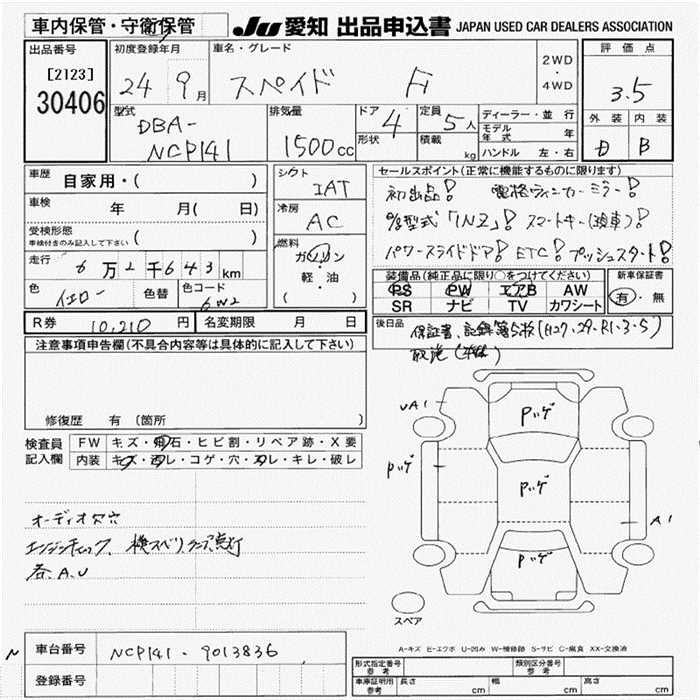 車内保管・守衛保管
JU 愛知 出品申込書 JAPAN USED CAR DEALERS ASSOCIATION
出品番号
[2123]
30406
初度登録年月
24 9月
車名・グレード
スペイド F
2WD
・
4WD
評価点
3.5
外装 内装
D B
型式
DBA-
NCP141
排気量
1500cc
ドア 4
形状
定員 5人
積載 kg
ディーラー・並行
モデル年式 年
ハンドル 左・右
車歴 自家用・( )
車検 年 月( 日)
受検形態 ( )
車検付きのみ記入して下さい
走行 6万2千643km
色 イエロー 色替 色コード 6W2
シフト
IAT
冷房
AC
燃料
ガソリン
軽・油
( )
セールスポイント(正常に機能するものに限ります)
初出品! 電格ウィンカーミラー!
%型式「1NZ」! スマートキー(現車)!
パワースライドドア! ETC! プッシュスタート!
装備品(純正品に限り○をつけてください)
PS PW エアB AW
SR ナビ TV カワシート
新車保証書
有・無
R券 10,210円 名変期限 月 日
後日品 保証書、記録簿5枚(H27.29.R1.3.5)
取説(本体)
注意事項申告欄(不具合内容等は具体的に記入して下さい)
修復歴 有 (箇所 )
検査員記入欄
FW キズ・飛石・ヒビ割・リペア跡・X要
内装 キズ・汚レ・コゲ・穴・スレ・キレ・破レ
オーディオ欠穴
エンジンチェック、横スベリ、
各A,U
UA1
Pッゲ
Pッゲ
Pッゲ
Pッゲ
A1
スペア
A-キズ E-エクボ U-凹み W-補修跡 S-サビ C-腐食 XX-交換済
N
車台番号 NCP141-9013836
登録番号
形式指定番号 参考
類別区分番号 参考
車庫証明用 参考 長さ cm 幅 cm 高さ cm